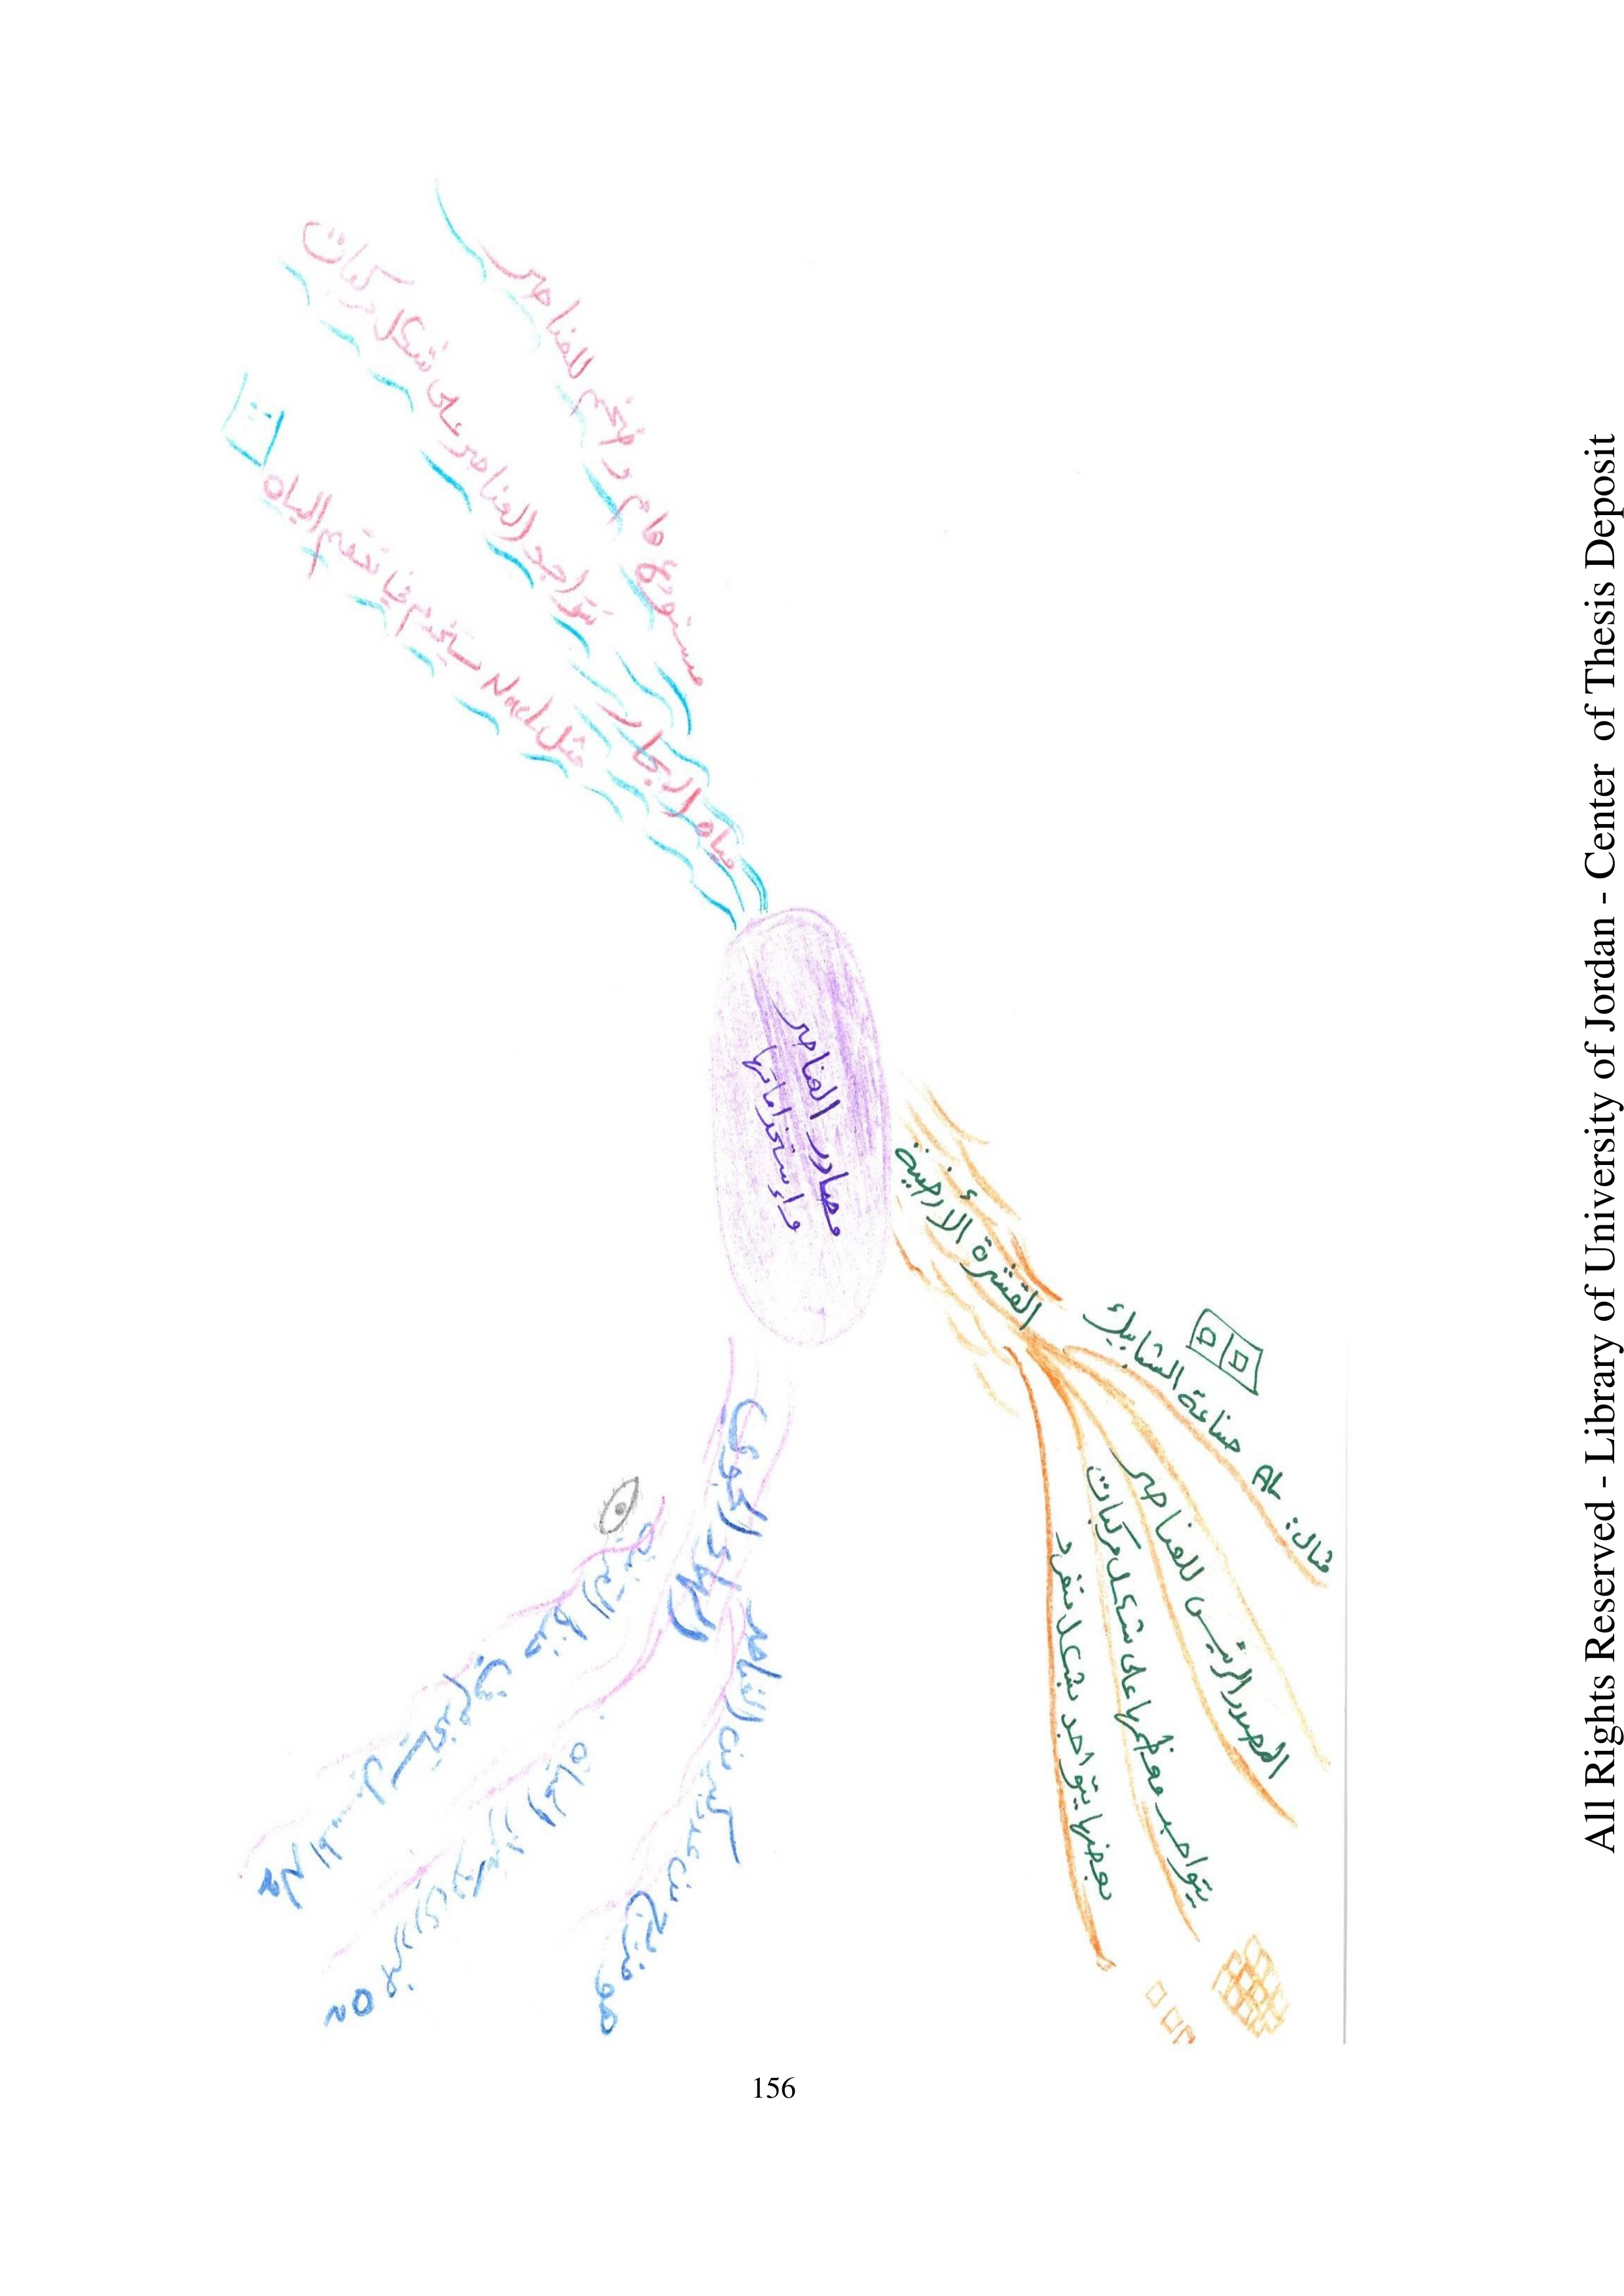 مصادر العناصر
وإستخداماتها
القشرة الأرضية
مثال: Al صناعة الشبابيك
المصدر الرئيس للعناصر
يتواجد معظمها على شكل مركبات
بعضها يتواجد بشكل منفرد
مياه البحار
مستودع هام وضخم للعناصر
تتواجد العناصر على شكل مركبات
مثل NaCl يستخدم في تعقيم المياه
الهواء الجوي
هو مزيج من عدد كبير من العناصر
O2 ضروري لاستمرار الحياة
يستخدم في حفظ القرنية
156
All Rights Reserved - Library of University of Jordan - Center of Thesis Deposit